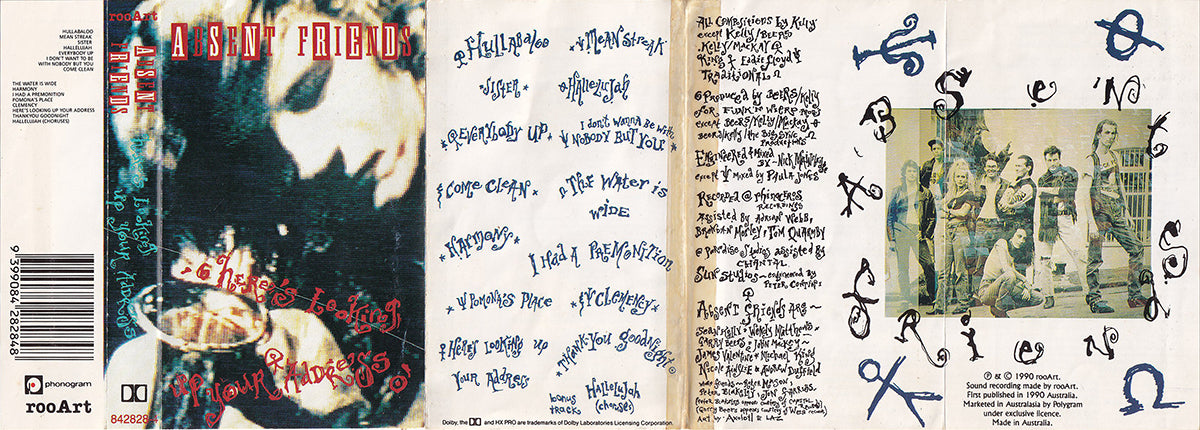 HULLABALOO
MEAN STREAK
SISTER
HALLELUJAH
EVERYBODY UP
I DON'T WANT TO BE
WITH NOBODY BUT YOU
COME CLEAN
THE WATER IS WIDE
HARMONY
I HAD A PREMONITION
POMONA'S PLACE
CLEMENCY
HERE'S LOOKING UP YOUR ADDRESS
THANKYOU GOODNIGHT
HALLELUJAH (CHORUSES)
9 399084 282848
phonogram
rooArt
rooArt
ABSENT
FRIENDS
Here's Looking
up your Address
842828-4
ABSENT FRIENDS
Here's Looking
up your Address
Hullabaloo
Mean Streak
Sister
Hallelujah
Everybody Up
I don't wanna Be with
Nobody But You
Come Clean
The Water is
Wide
Harmony
I Had A Premonition
Pomona's Place
Clemency
Here's Looking up
Your Address
Thank-You Goodnight!
bonus
track
Hallelujah
(choruses)
Dolby, the DD and HX PRO are trademarks of Dolby Laboratories Licensing Corporation.
All Compositions by Kelly
except Kelly/Beers
Kelly/Mackay
King & Eddie Floyd
Traditional
Produced by Beers/Kelly
for Funk'n Wiers Prods
except Beers/Kelly/Mackay
Beers/Kelly/The Big Sync
Productions
Engineered & Mixed
By ~ Nick Mainsbridge
except Mixed by Paula Jones
Recorded @ Rhinoceros
Recordings
Assisted by Adrian Webb,
Brendan Morley, Tom Quarmby
@ Paradise Studios assisted by
Chantal
Sun Studios ~ engineered by
Peter
Absent Friends Are ~
Sean Kelly, Wendy Matthews,
Garry Beers, John Mackey,
James Valentine, Michael King
Nicole Ainslie & Andrew Duffield
Peter Blakeley
Art by ~ Axolotl & Laz
ABSENT
FRIENDS
℗ & © 1990 rooArt.
Sound recording made by rooArt.
First published in 1990 Australia.
Marketed in Australasia by Polygram
under exclusive licence.
Made in Australia.